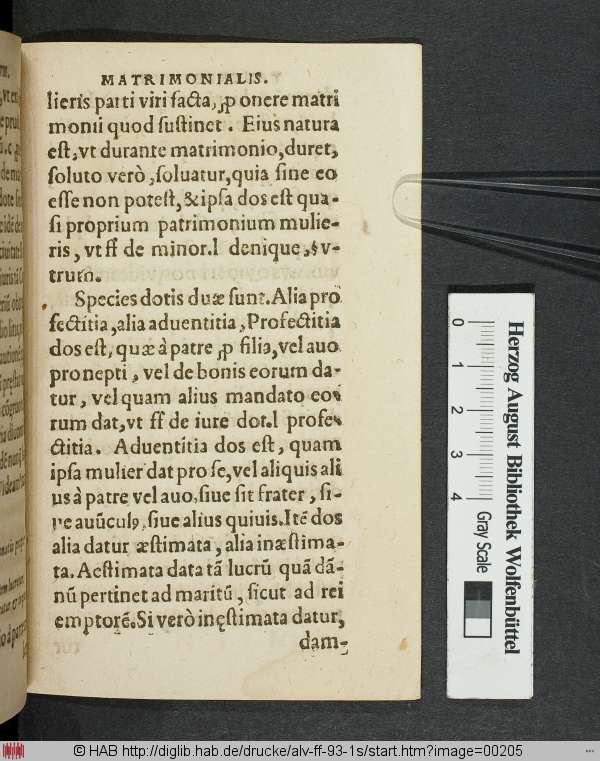 MATRIMONIALIS.
lieris parti viri facta, ꝓ onere matri
monii quod sustinet. Eius natura
est, vt durante matrimonio, duret,
soluto verò, soluatur, quia sine eo
esse non potest, & ipsa dos est qua-
si proprium patrimonium mulie-
ris, vt ff de minor. l denique, § v-
trum.
Species dotis duæ sunt. Alia pro
fectitia, alia aduentitia, Profectitia
dos est, quæ à patre ꝓ filia, vel auo
pronepti, vel de bonis eorum da-
tur, vel quam alius mandato eo-
rum dat, vt ff de iure dot. l profe-
ctitia. Aduentitia dos est, quam
ipsa mulier dat pro se, vel aliquis ali
us à patre vel auo. siue sit frater, si-
ue auũculꝰ, siue alius quiuis. Itẽ dos
alia datur æstimata, alia inæstima-
ta. Aestimata data tã lucrũ quã dã-
nũ pertinet ad maritũ, sicut ad rei
emptorẽ. Si verò inęstimata datur,
dam-
Herzog August Bibliothek Wolfenbüttel
0 1 2 3 4
Gray Scale
© HAB http://diglib.hab.de/drucke/alv-ff-93-1s/start.htm?image=00205